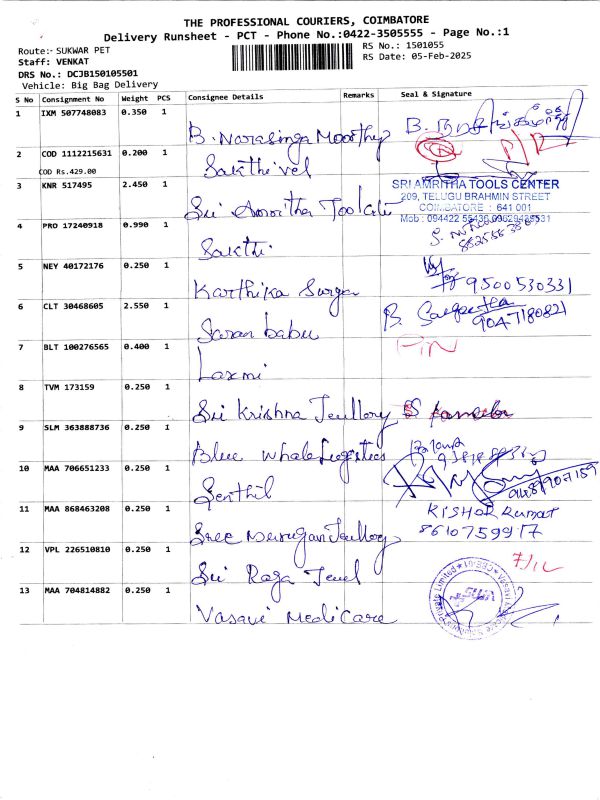 THE PROFESSIONAL COURIERS, COIMBATORE
Delivery Runsheet - PCT - Phone No.:0422-3505555 - Page No.:1
Route:- SUKWAR PET
RS No.: 1501055
Staff: VENKAT
RS Date: 05-Feb-2025
DRS No.: DCJB150105501
Vehicle: Big Bag Delivery
S No Consignment No Weight PCS Consignee Details Remarks Seal & Signature
1 IXM 507748083 0.350 1
B. Narasinga Moorthy
2 COD 1112215631 0.200 1
Sakthivel
COD Rs.429.00
3 KNR 517495 2.450 1
SRI AMRITHA TOOLS CENTER
209, TELUGU BRAHMIN STREET
COIMBATORE : 641 001
Sri Amritha Tool
Mob : 094422 55436
4 PRO 17240918 0.990 1
Sakthi
5 NEY 40172176 0.250 1
9500530331
Karthika Surya
6 CLT 30468605 2.550 1
B.
9047180821
Saran babu
7 BLT 100276565 0.400 1
Laxmi
8 TVM 173159 0.250 1
Sri Krishna Jeullory
9 SLM 363888736 0.250 1
Blue Whale Logistics
10 MAA 706651233 0.250 1
Senthil
11 MAA 868463208 0.250 1
KISHOR Kumar
8610759917
Sree Murugan Jeullory
12 VPL 226510810 0.250 1
Sri Raja Jewel
13 MAA 704814882 0.250 1
Vasavi Medicare